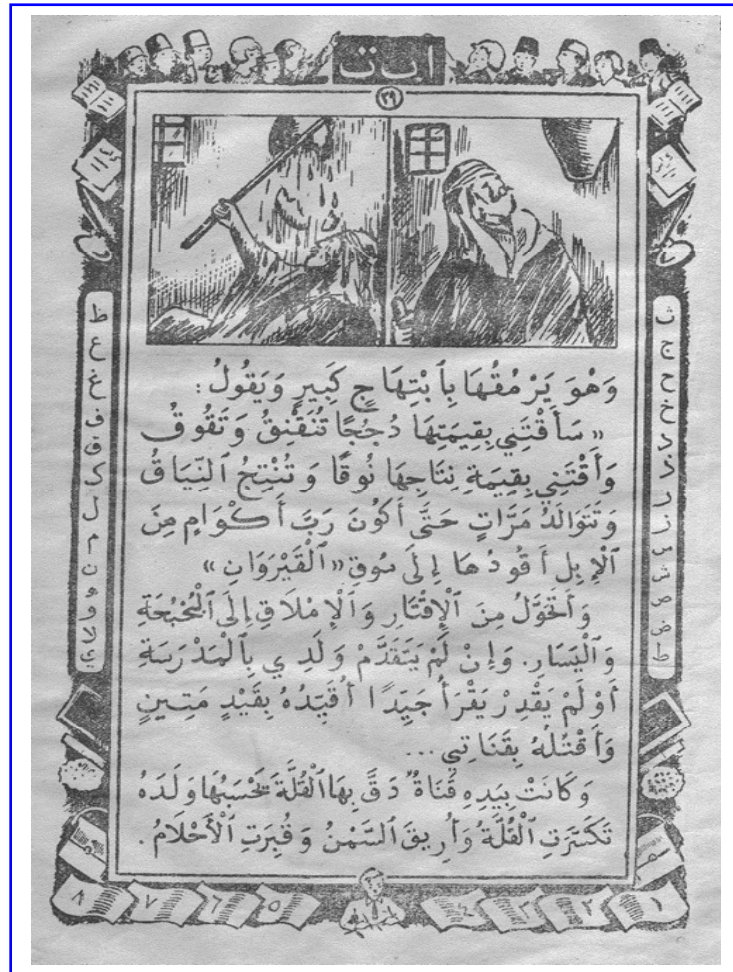 ا ب ت
٣٩
وَهْوَ يَرْمُقُهَا بِٱبْتِهَاجٍ كَبِيرٍ وَيَقُولُ :
« سَأَقْتَنِي بِقِيمَتِهَا دُجُجًا تُنَقْنِقُ وَتَقُوقُ
وَأَقْتَنِي بِقِيمَةِ نِتَاجِهَا نُوقًا وَتُنْتِجُ ٱلنِّيَاقُ
وَتَتَوَالَدُ مَرَّاتٍ حَتَّى أَكُونَ رَبَّ أَكْوَامٍ مِنَ
ٱلْإِبِلِ أَقُودُهَا إِلَى سُوقِ « ٱلْقَيْرَوَانِ »
وَأَتَحَوَّلُ مِنَ ٱلْإِقْتَارِ وَٱلْإِمْلَاقِ إِلَى ٱلْبُحْبُحَةِ
وَٱلْيَسَارِ. وَإِنْ لَمْ يَتَقَدَّمْ وَلَدِي بِٱلْمَدْرَسَةِ
أَوْ لَمْ يَقْدِرْ يَقْرَأُ جَيِّدًا أُقَيِّدُهُ بِقَيْدٍ مَتِينٍ
وَأَقْتُلُهُ بِقَنَاتِي ...
وَكَانَتْ بِيَدِهِ قَنَاةٌ دَقَّ بِهَا ٱلْقُلَّةَ يَحْسَبُهَا وَلَدَهُ
تَكَسَّرَتِ ٱلْقُلَّةُ وَأُرِيقَ ٱلسَّمْنُ وَقُبِرَتِ ٱلْأَحْلَامُ .
ث ج ح خ د ذ ر ز س ش ص ض ط
ظ ع غ ف ق ك ل م ن ه و لا ي
١ ٢ ٣ ٤ ٥ ٦ ٧ ٨